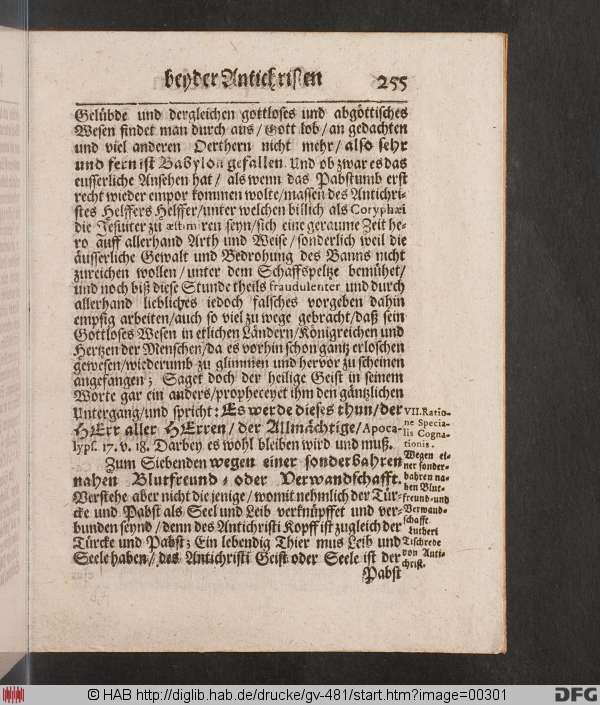 beyder Antichristen 255
Gelübde und dergleichen gottloses und abgöttisches
Wesen findet man durch aus / Gott lob / an gedachten
und viel anderen Oerthern nicht mehr / also sehr
und fern ist Babylon gefallen. Und ob zwar es das
eusserliche Ansehen hat / als wenn das Pabstumb erst
recht wieder empor kommen wolte / massen des Antichri-
stes Helffers Helffer / unter welchen billich als Coryphæi
die Jesuiter zu æstimiren seyn / sich eine geraume Zeit he-
ro auff allerhand Arth und Weise / sonderlich weil die
äusserliche Gewalt und Bedrohung des Banns nicht
zureichen wollen / unter dem Schaffspeltze bemühet /
und noch biß diese Stunde theils fraudulenter und durch
allerhand liebliches iedoch falsches vorgeben dahin
empsig arbeiten / auch so viel zu wege gebracht / daß sein
Gottloses Wesen in etlichen Ländern / Königreichen und
Hertzen der Menschen / da es vorhin schon gantz erloschen
gewesen / wiederumb zu glimmen und hervor zu scheinen
angefangen ; Saget doch der heilige Geist in seinem
Worte gar ein anders / propheceyet ihm den gäntzlichen
Untergang / und spricht : Es werde dieses thun / der
HErr aller HErren / der Allmächtige / Apoca-
lyps. 17. v. 18. Darbey es wohl bleiben wird und muß.
Zum Siebenden wegen einer sonderbahren
nahen Blutfreund- oder Verwandschafft.
Verstehe aber nicht die jenige / womit nehmlich der Tür-
cke und Pabst als Seel und Leib verknüpffet und ver-
bunden seynd / denn des Antichristi Kopff ist zugleich der
Türcke und Pabst ; Ein lebendig Thier mus Leib und
Seele haben / des Antichristi Geist oder Seele ist der
Pabst
VII. Ratio-
ne Specia-
lis Cogna-
tionis.
Wegen ei-
ner sonder-
bahren na-
hen Blut-
freund- und
Verwand-
schafft.
Lutheri
Tischrede
von Anti-
christ.
© HAB http://diglib.hab.de/drucke/gv-481/start.htm?image=00301
DFG